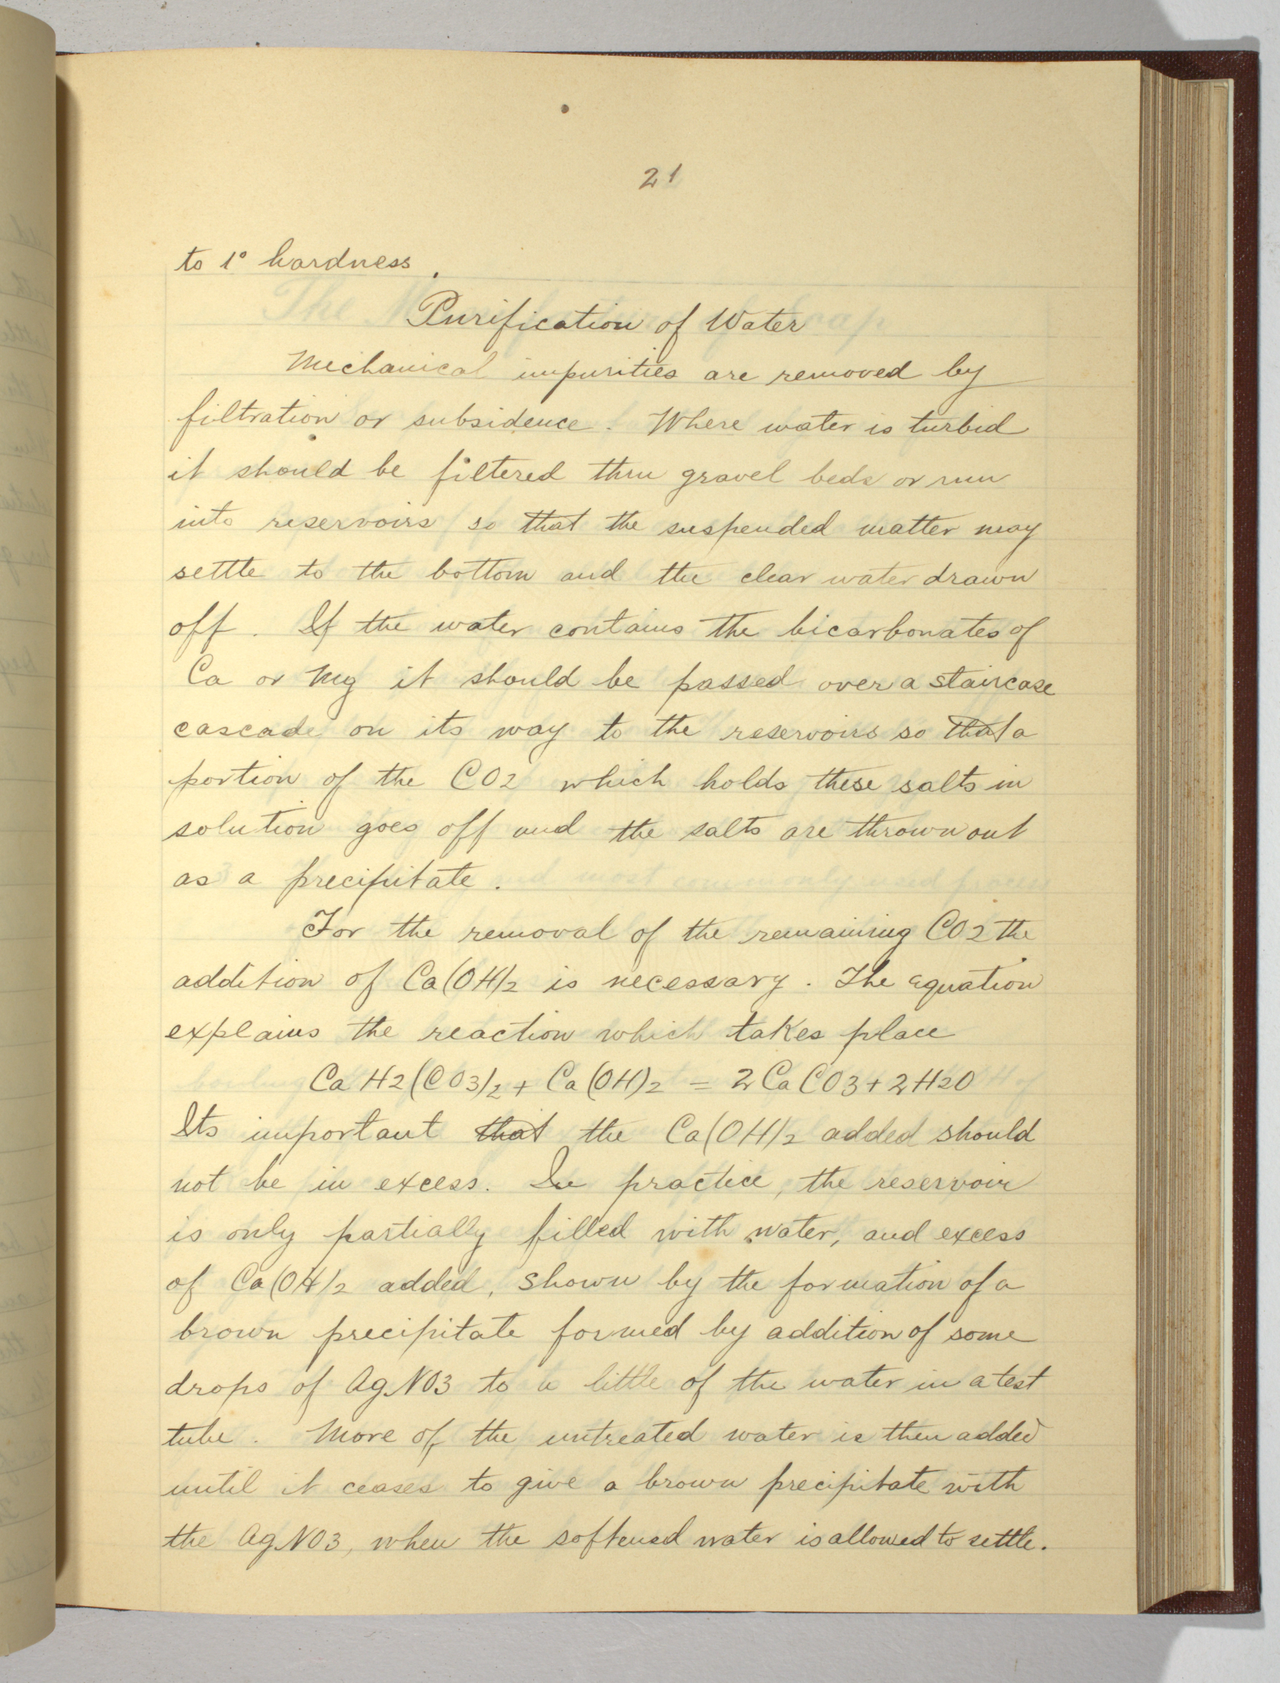 21
to 1° hardness.
Purification of Water
Mechanical impurities are removed by
filtration or subsidence. Where water is turbid
it should be filtered thru gravel beds or run
into reservoirs so that the suspended matter may
settle to the bottom and the clear water drawn
off. If the water contains the bicarbonates of
Ca or Mg it should be passed over a staircase
cascade on its way to the reservoirs so that a
portion of the CO2 which holds these salts in
solution goes off and the salts are thrown out
as a precipitate.
For the removal of the remaining CO2 the
addition of Ca(OH)2 is necessary. The equation
explains the reaction which takes place
Ca H2(CO3)2 + Ca(OH)2 = 2CaCO3 + 2H2O
Its important that the Ca(OH)2 added should
not be in excess. In practice, the reservoir
is only partially filled with water, and excess
of Ca(OH)2 added, shown by the formation of a
brown precipitate formed by addition of some
drops of AgNO3 to a little of the water in a test
tube. More of the untreated water is then added
until it ceases to give a brown precipitate with
the AgNO3, when the softened water is allowed to settle.